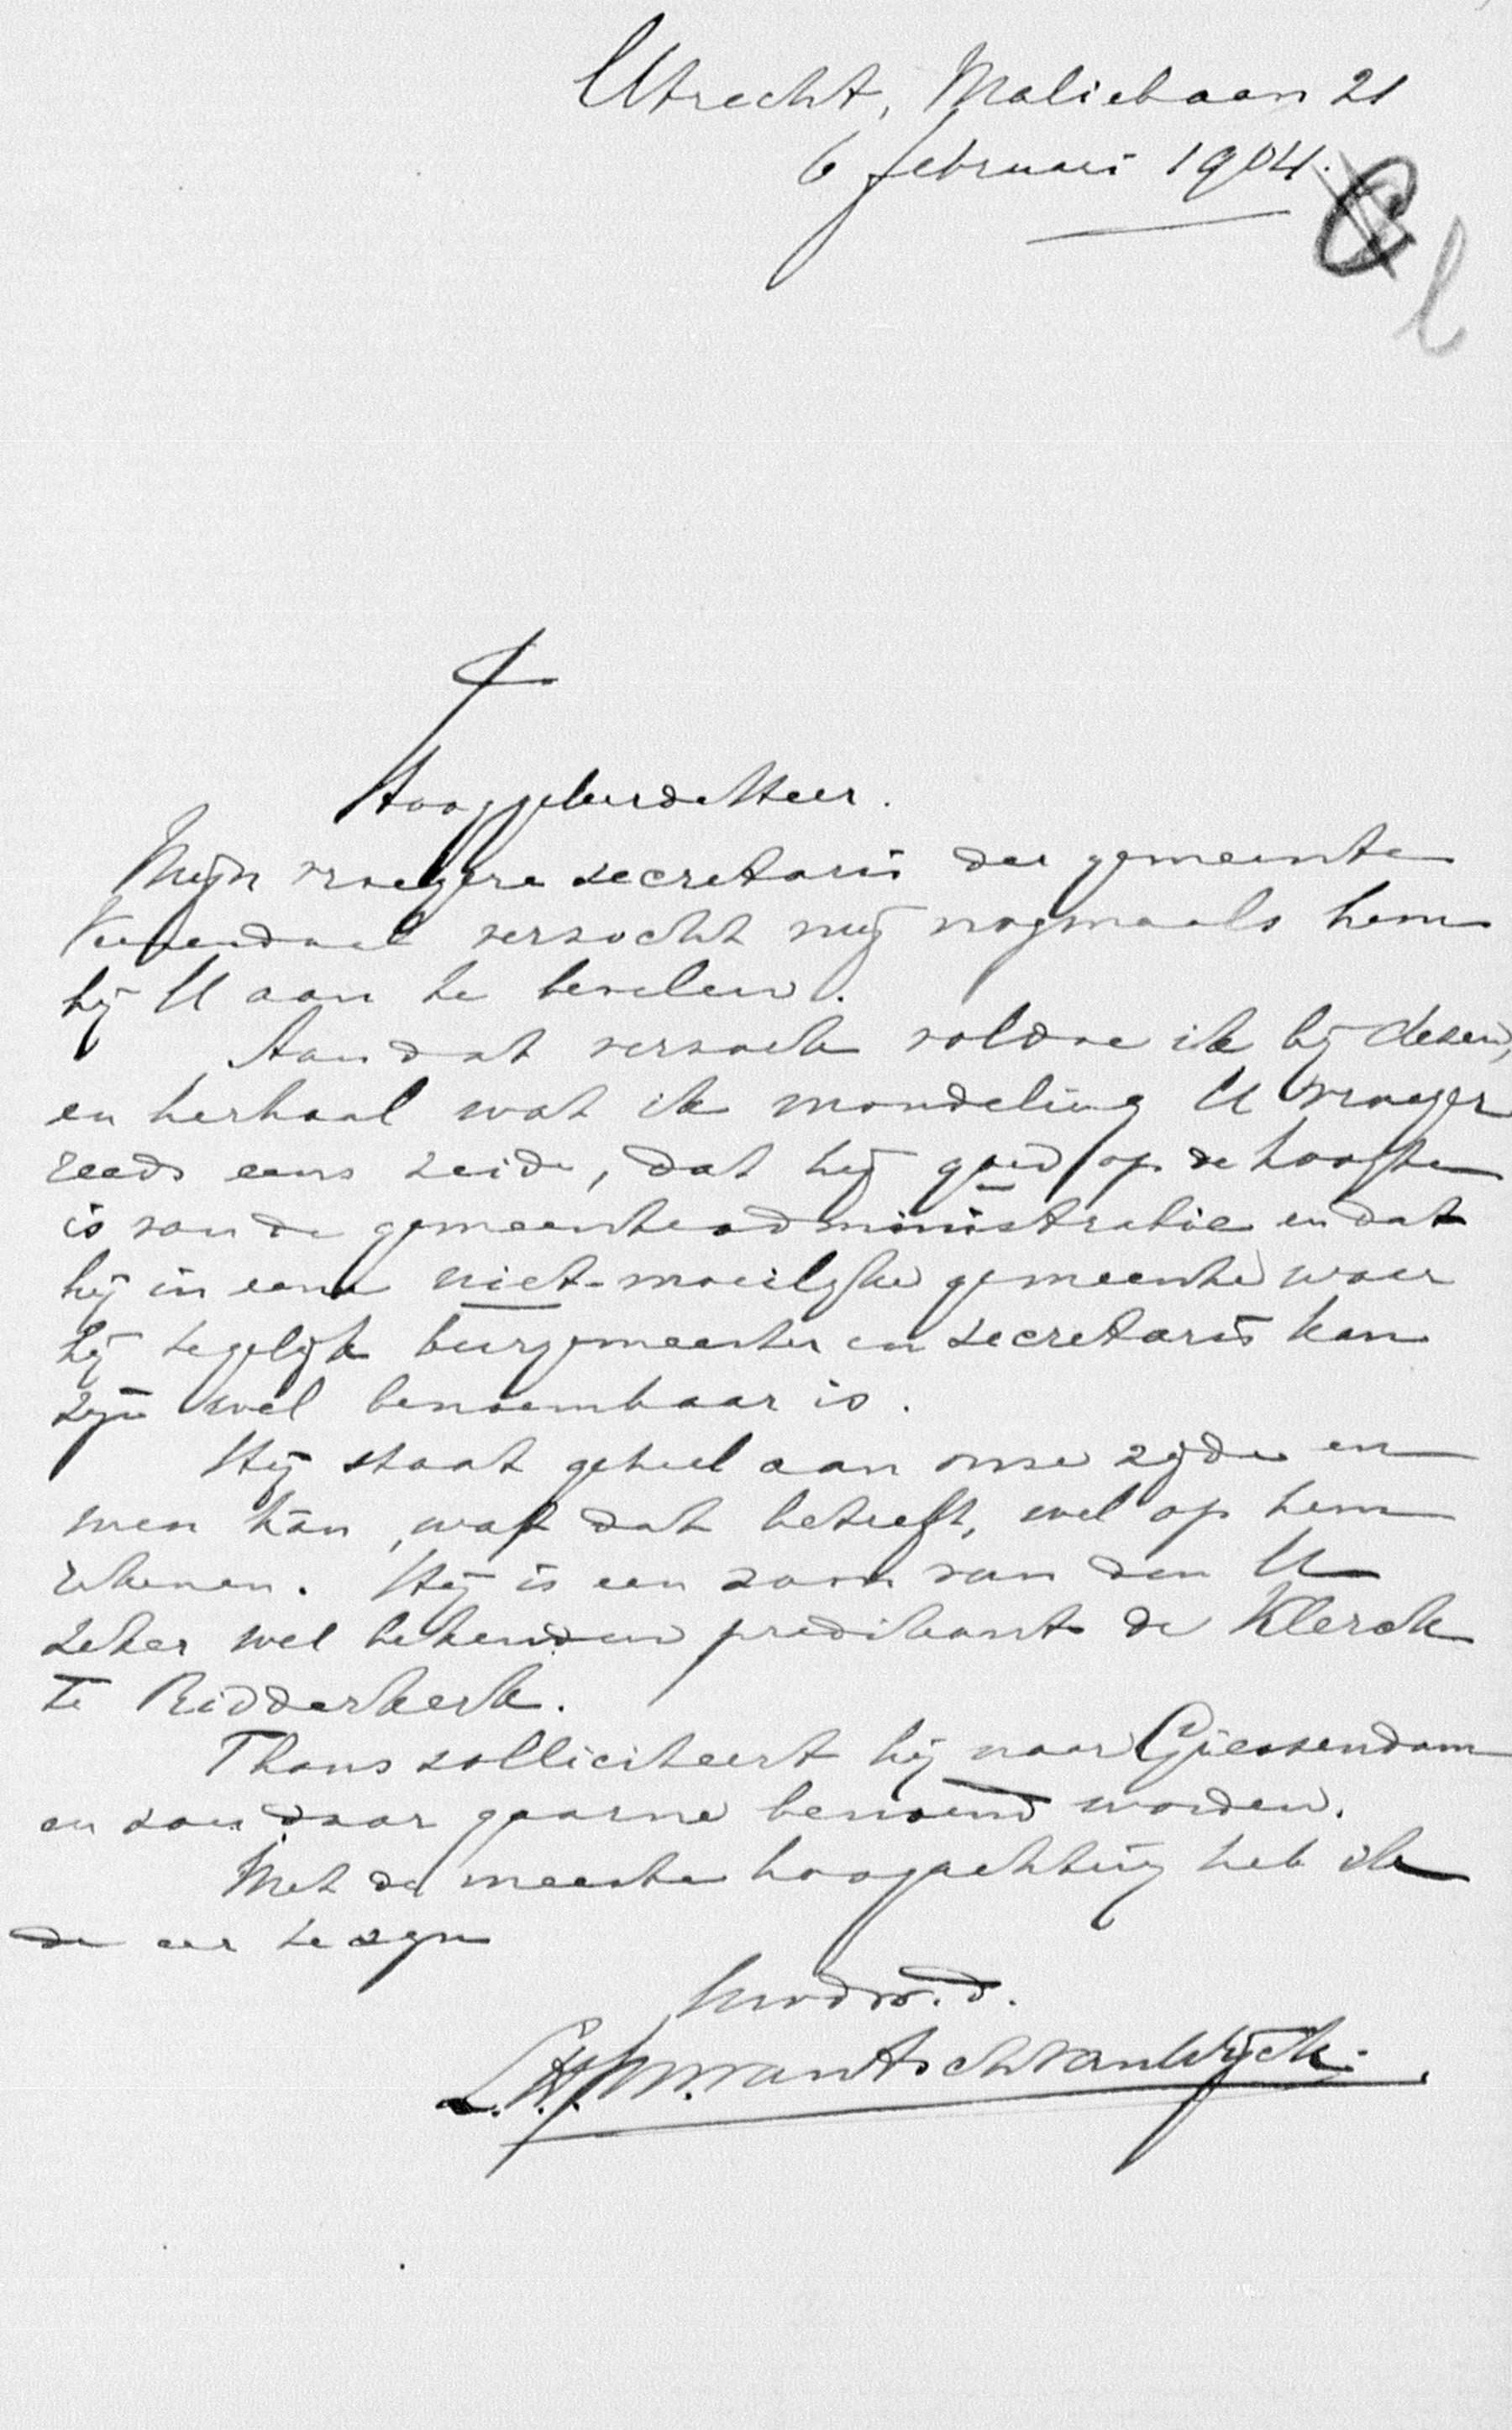 Utrecht, Maliebaan 21
6 februari 1904.
l
HooggeleerdeHeer.
Mijn vroegere secretaris der gemeente
Veenendaal verzocht mij nogmaals hem
bij U aan te bevelen.
Aan dat verzoek voldoe ik bij dezen,
en herhaal wat ik mondeling U vroeger
reeds eens zeide, dat hij goed op de hoogte
is van de gemeenteadministratie en dat
hij in eene niet-moeilijke gemeente waar
hij tegelijk burgemeester en secretaris kan
zijn wel benoembaar is.
Hij staat geheel aan onze zijde en
men kan, wat dat betreft, wel op hem
rekenen. Hij is een zoon van den U
zeker wel bekenden predikant de Klerck
te Ridderkerk.
Thans solliciteert hij naar Giessendam
en zou daar gaarne benoemd worden.
Met de meeste hoogachting heb ik
de eer te zijn
Uwdw.d.
L.H.J.M.vanAschvanWijck.